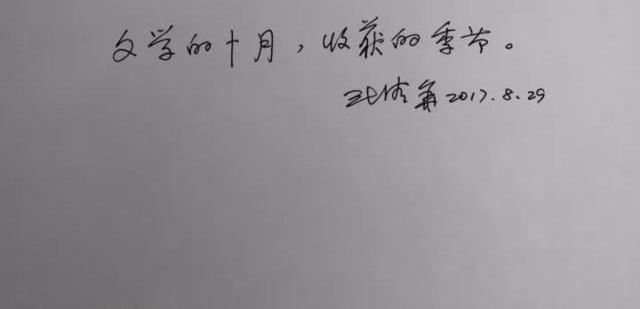 文学的十月，收获的季节。
2017.8.29